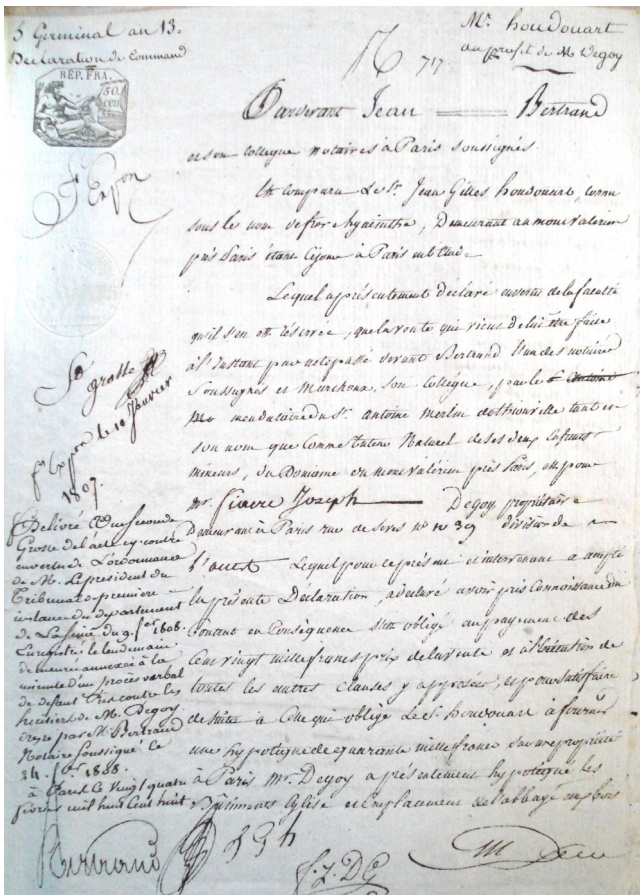 5 Germinal an 13.
Déclaration de Command
REP. FRA.
50.
cen
Mr. houdouart
au profit de M Degoy
717.
Pardevant Jean Bertrand
et son collegue notaires à Paris soussignés
Est comparu Le Sr. Jean Gilles houdouart, connu
sous le nom de frere hyacinthe, Demeurant au mont valerien
près Paris étant ce jour à Paris
Lequel a présentement déclaré en vertu de la faculté
qu'il s'en est réservée, que la vente qui vient de lui être faite
à l'instant par acte passé devant Bertrand l'un des notaires
Soussignés et Marchoux, son collegue, par le
mandataire du Sr. antoine merlin de thionville tant en
son nom que Comme tuteur Naturel de ses deux Enfants
mineurs, du Domaine du mont valérien près Paris, est pour
mr. Joseph Degoy, propriétaire
Demeurant à Paris rue de Sevres no 39 division de
l'ouest Lequel pour ce présent et intervenant a accepté
la présente Déclaration, a déclaré avoir pris Connaissance du
Contrat en Conséquence s'est obligé au payement des
Cent vingt mille francs prix de la vente et à l'exécution de
toutes les autres clauses y apposées, et pour satisfaire
de suite à Celle qui oblige Le Sr. houdouart à fournir
une hypotheque de quarante mille francs sur une propriété
à Paris Mr. Degoy a présentement hypotéqué les
Bâtiments Eglise et Emplacement de l'abbaye aux bois
fr Expon
grosse
fr Expon le 10 Janvier
1807.
Délivré Une seconde
Grosse de l'acte cy contre
en vertu de L'ordonnance
de M. Le president du
Tribunal de premiere
instance du departement
de La Seine du 9. fer. 1808.
Enregistré le lendemain
demeurée annexée à la
minute d'un procès verbal
de defaut contre les
heritiers de M. Degoy
par Me Bertrand
Notaire Soussigné le
24. 1808.
à Paris Le Vingt quatre
fevrier mil huit Cent huit
Bertrand
f. J. DG